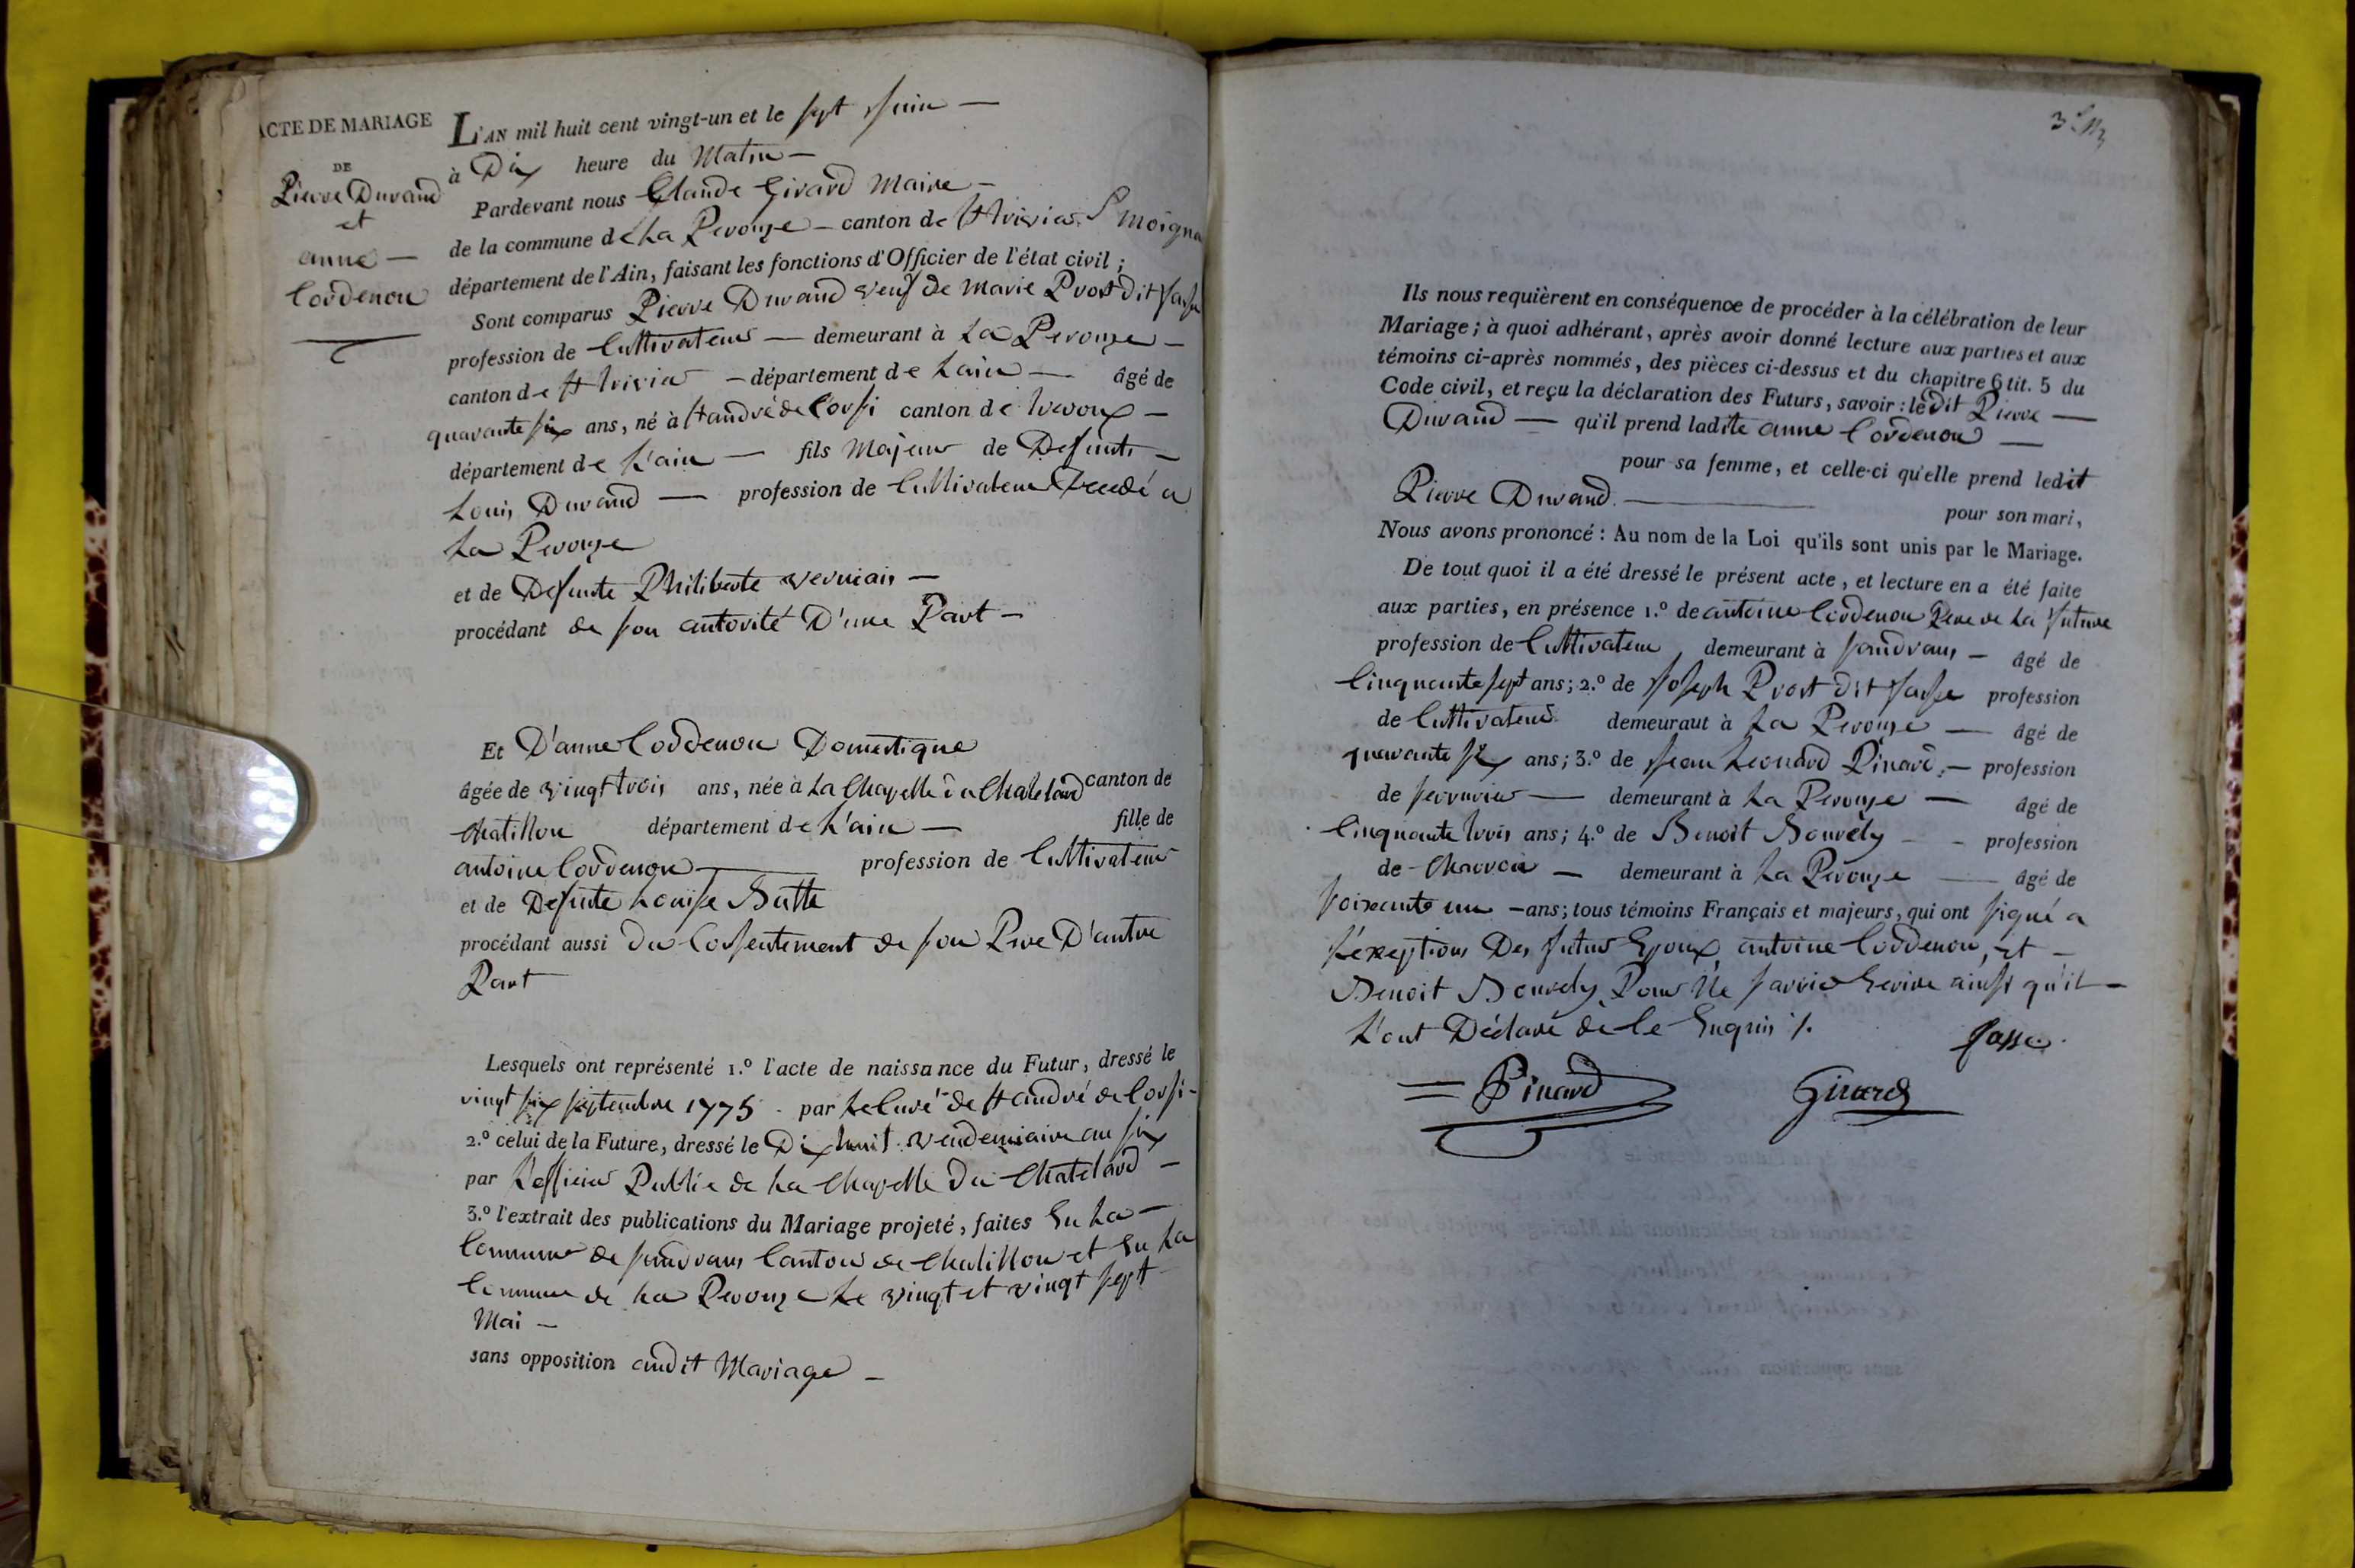 ACTE DE MARIAGE
DE
Pierre Durand
et
anne —
Cordenou
L'AN mil huit cent vingt-un et le sept Juin —
à Dix heure du Matin —
Pardevant nous Claude Girard Maire —
de la commune de La Perouze — canton de St trivier S. Moigna
département de l'Ain, faisant les fonctions d'Officier de l'état civil ;
Sont comparus Pierre Durand veuf de Marie Prost dit Jasse
profession de Cultivateur — demeurant à La Perouze —
canton de St trivier — département de Lain — âgé de
quarante six ans, né à St andré de Corsi canton de trevoux —
département de L'ain — fils Majeur de Defunts —
Louis Durand — profession de Cultivateur décedé a
La Perouze
et de Defunte Philiberte Verniais —
procédant de son autorité D'une Part —
Et D'anne Cordenou Domestique
âgée de vingt trois ans, née à La Chapelle du Chatelard canton de
Chatillon département de L'ain — fille de
antoine Cordenou — profession de Cultivateur
et de Defunte Louise Butte
procédant aussi du Consentement de son Pere D'autre
Part
Lesquels ont représenté 1.º l'acte de naissance du Futur, dressé le
vingt six septembre 1775 . par Le Curé de St andré de Corsi —
2.º celui de la Future, dressé le Dix huit vendemiaire an six
par L'officier Public de La Chapelle Du Chatelard —
3.º l'extrait des publications du Mariage projeté, faites En La —
Commune de sandrans Canton de Chatillon et En La
Commune de La Perouze Le vingt et vingt sept
Mai —
sans opposition audit Mariage —
Ils nous requièrent en conséquence de procéder à la célébration de leur
Mariage ; à quoi adhérant, après avoir donné lecture aux parties et aux
témoins ci-après nommés, des pièces ci-dessus et du chapitre 6 tit. 5 du
Code civil, et reçu la déclaration des Futurs, savoir : le dit Pierre —
Durand — qu'il prend ladite anne Cordenou —
pour sa femme, et celle-ci qu'elle prend ledit
Pierre Durand. — pour son mari,
Nous avons prononcé : Au nom de la Loi qu'ils sont unis par le Mariage.
De tout quoi il a été dressé le présent acte, et lecture en a été faite
aux parties, en présence 1.º de antoine Cordenou Pere de La future
profession de Cultivateur demeurant à sandrans — âgé de
Cinquante sept ans ; 2.º de Joseph Prost dit Jasse profession
de Cultivateur demeurant à La Perouze — âgé de
quarante six ans ; 3.º de Jean Leonard Pinard — profession
de serrurier — demeurant à La Perouze — âgé de
Cinquante trois ans ; 4.º de Benoit Bouvely — profession
de Charron — demeurant à La Perouze — âgé de
soixante un — ans ; tous témoins Français et majeurs, qui ont signé a
L'exeption Des futur Epoux, antoine Cordenou, et —
Benoit Bouvely Pour Ne savoir Ecrire ainsi qu'il —
L'ont Déclaré de Ce Enquis /.
Jasse.
Pinard
Girard